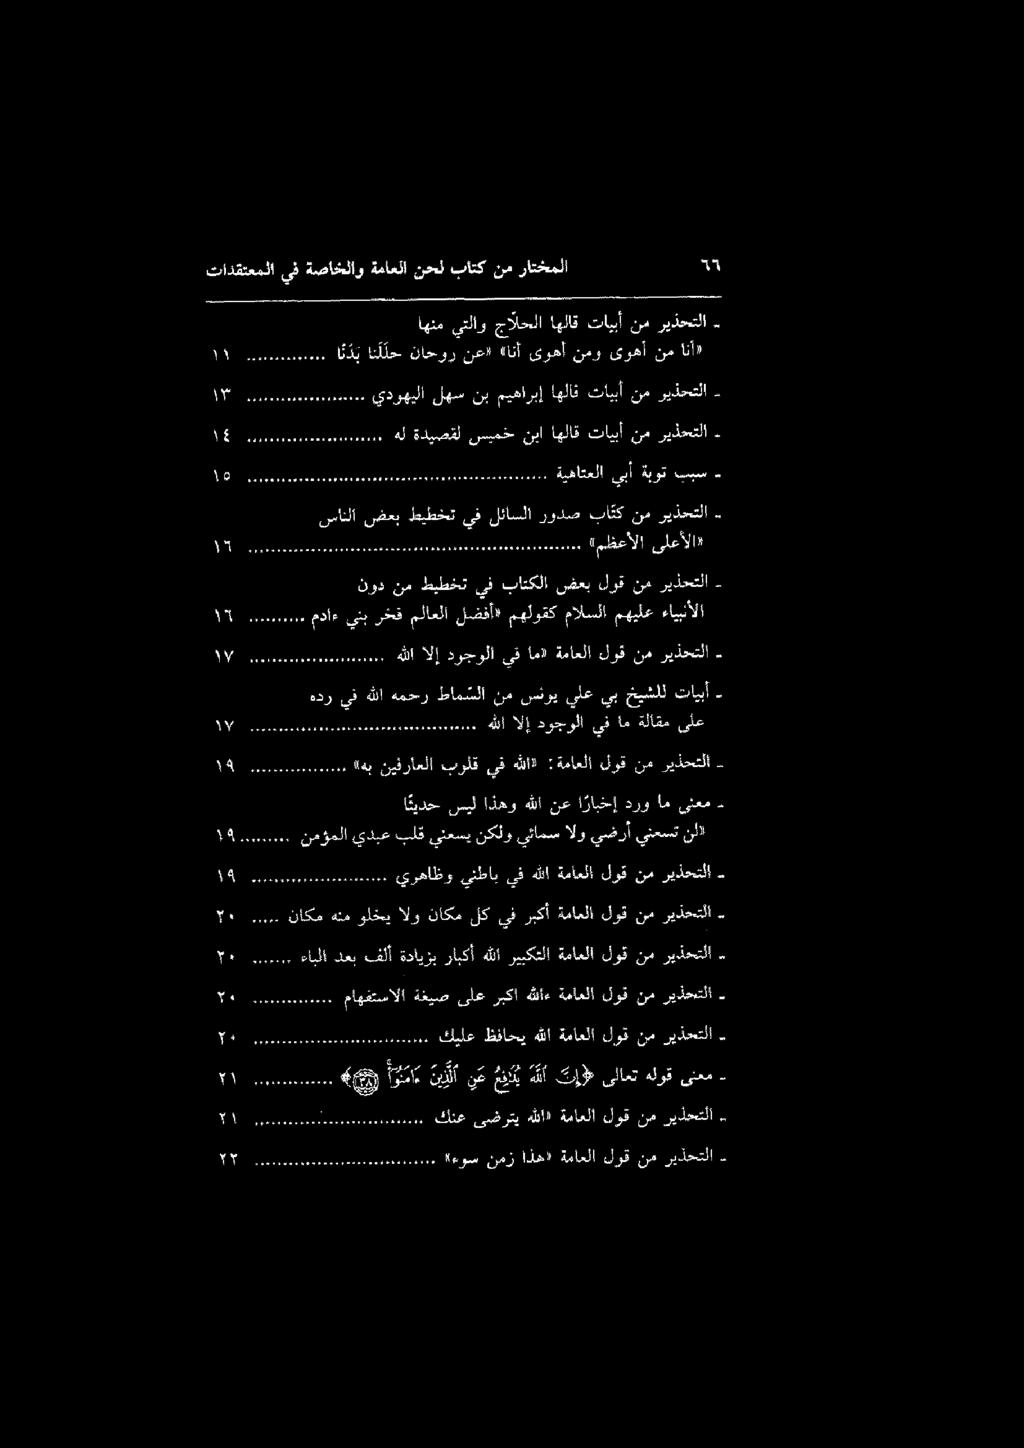 ٦٦ المختار من كتاب لحن العامة والخاصة في المعتقدات
ـ التحذير من أبيات قالها الحلاّج والتي منها
«أنا من أهوى ومن أهوى أنا» «عن روحان حلَلْنا بَدَنًا ............. ١١
ـ التحذير من أبيات قالها إبراهيم بن سهل اليهودي .................... ١٣
ـ التحذير من أبيات قالها ابن خميس لقصيدة له ....................... ١٤
ـ سبب توبة أبي العتاهية .................................................. ١٥
ـ التحذير من كتّاب صدور السائل في تخطيط بعض الناس
«الأعلى الأعظم» ........................................................ ١٦
ـ التحذير من قول بعض الكتاب في تخطيط من دون
الأنبياء عليهم السلام كقولهم «أفضل العالم فخر بني ءادم .......... ١٦
ـ التحذير من قول العامة «ما في الوجود إلا الله ....................... ١٧
ـ أبيات للشيخ بي علي يونس من السَّماط رحمه الله في رده
على مقالة ما في الوجود إلا الله ...................................... ١٧
ـ التحذير من قول العامة: «الله في قلوب العارفين به» ................ ١٩
ـ معنى ما ورد إخبارًا عن الله وهذا ليس حديثًا
«لن تسعني أرضي ولا سمائي ولكن يسعني قلب عبدي المؤمن ......... ١٩
ـ التحذير من قول العامة الله في باطني وظاهري ....................... ١٩
ـ التحذير من قول العامة أكبر في كل مكان ولا يخلو منه مكان ..... ٢٠
ـ التحذير من قول العامة التكبير الله أكبار بزيادة ألف بعد الباء ....... ٢٠
ـ التحذير من قول العامة ءالله اكبر على صيغة الاستفهام .............. ٢٠
ـ التحذير من قول العامة الله يحافظ عليك ............................. ٢٠
ـ معنى قوله تعالى ﴿إِنَّ ٱللَّهَ يُدَٰفِعُ عَنِ ٱلَّذِينَ ءَامَنُوٓاْۗ ٣٨﴾ ............. ٢١
ـ التحذير من قول العامة «الله يترضى عنك ............................ ٢١
ـ التحذير من قول العامة «هذا زمن سوء» .............................. ٢٢